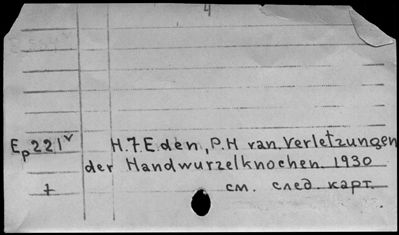 4
Ep 221v H.7.Eden, P.H van. Verletzungen
der Handwurzelknochen. 1930
+ см. след. карт.